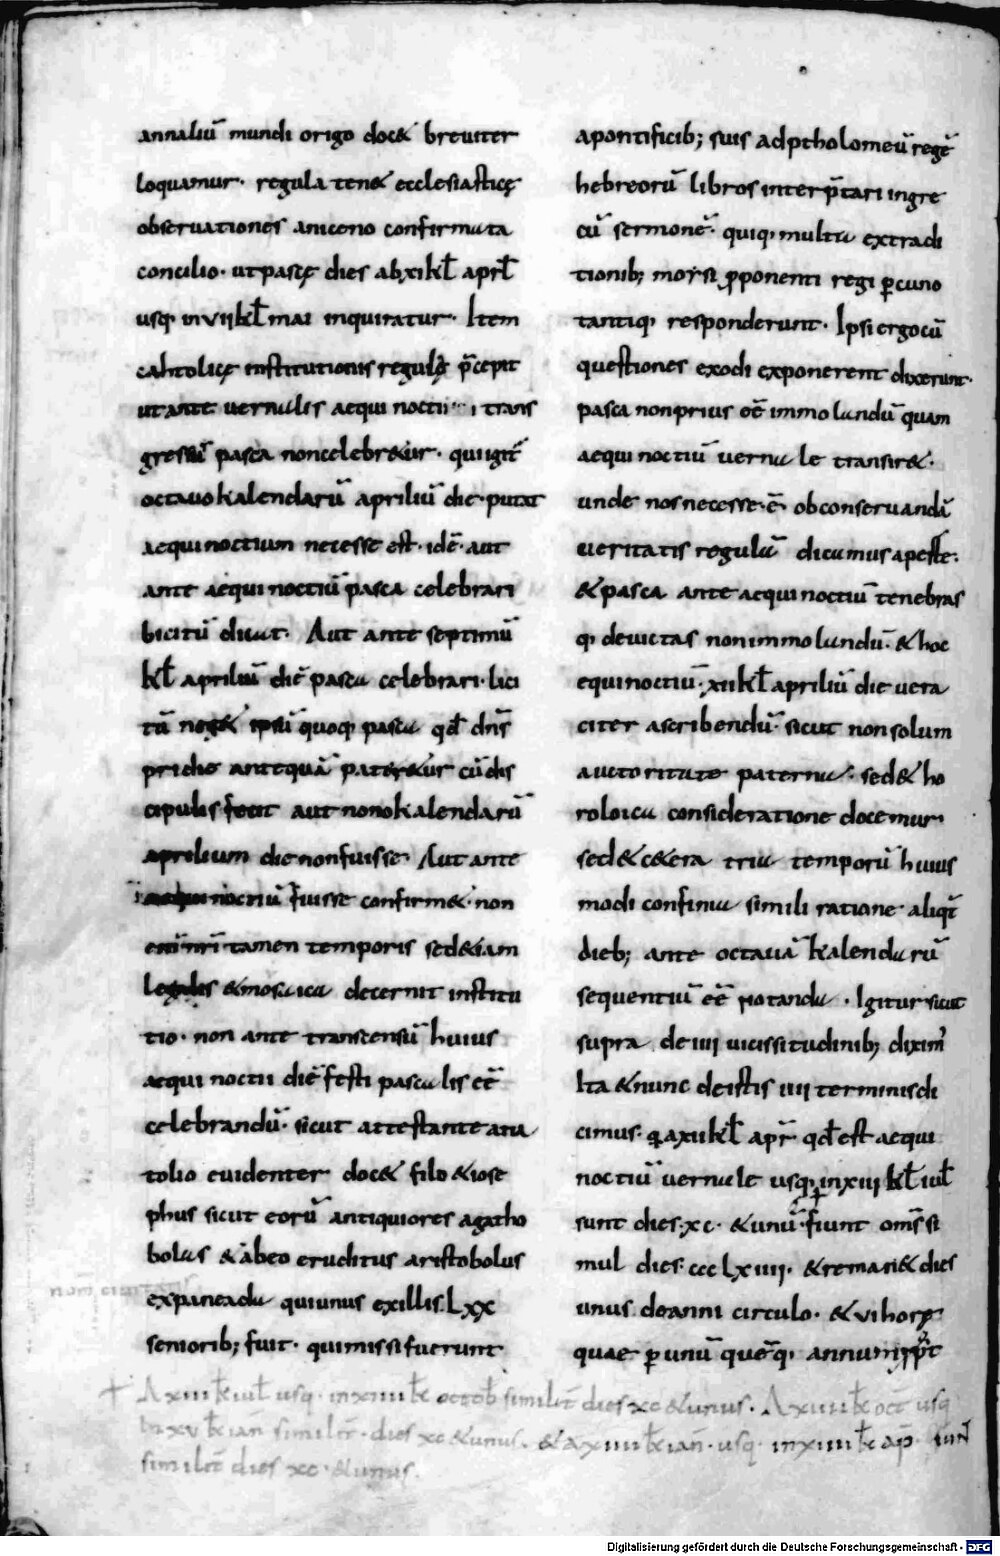 annaliū mundi origo doc& breuiter
loquamur· regula ten& ecclesiasticę
observationes aniceno confirmata
concilio· utpascę dies abxikł aprł
usq· inviikł mai inquiratur· Item
cahtolicę institutionis regulę p̄cepit
ut ante uernalis aequinoctii trans
gressū pasca noncelebr&ur· quiigit̄
octauokalendarū apriliū die· putat
aequinoctium necesse est· idē· aut
ante aequinoctiū pasca celebrari
bicitū dicat· Aut ante septimū
kł apriliū diē pasca celebrari· lici
tū neg& ipsū quoq· pasca qđ dn̄s
pridie antequā pater&ur cū dis
cipulis fecit aut nonokalendarū
aprilium dienonfuisse· Aut ante
aequinoctiū fuisse confirm&· non
eni n̄ri tamen temporis sed&iam
legalis &mosaica decernit institu
tio· non ante transcensū huius
aequinoctii diē festi pascalis eē
celebrandū· sicut attestante ana
tolio euidenter doc& filo &iose
phus sicut eorū antiquiores agatho
bolus &abeo eruditus aristobolus
expaneada quiunus exillis· Lxx
seniorib; fuit· quimissifuerunt
apontificib; suis adptholomeū regē
hebreorū libros interp̄tari ingre
cū sermonē· quiq· multa extradi
tionib; moysi proponenti regi ꝑcuno
tantiq· responderunt· Ipsi ergocū
questiones exodi exponerent dixerunt·
pasca nonprius eē immolandū quam
aequinoctiū uernale transir&·
unde nosnecesse· ē· obconseruandā
ueritatis regulā dicamus apeste·
&pasca ante aequinoctiū tenebras
q· deuictas nonimmolandū· & hoc
equinoctiū· xiikł apriliū die uera
citer ascribendū· sicut nonsolum
auctoritate paterna· sed& ho
roloica consideratione docemur·
sed&c&era tria temporū huius
modi confinia simili ratione aliqt̄
dieb; ante octauā kalendarū
sequentiū eē notanda· Igitur sicut
supra de iiii uicissitudinib; dixim̄
Ita &nunc deistis iiii terminisdi
cimus· q axiikł apr̄ qđ est aequi
noctiū uernale usq· inxiii kł iuł
sunt dies· xc· &unū· fiunt oms̄ si
mul dies· ccc lxiiii· &reman& dies
unus deanni circulo· &vi horę
quae ꝑ unū quēq· annū
+ Axiii kł iuł usq· inxiiii kł octob̄ similit̄ dies xc &unus· Axiiii kł oct̄ usq
In xv kł ian̄ similit̄· dies xc &unus· &axiiii kł ian̄· usq· inxiiii kł ap̄·
similit̄ dies xc· &unus·
Digitalisierung gefördert durch die Deutsche Forschungsgemeinschaft · DFG